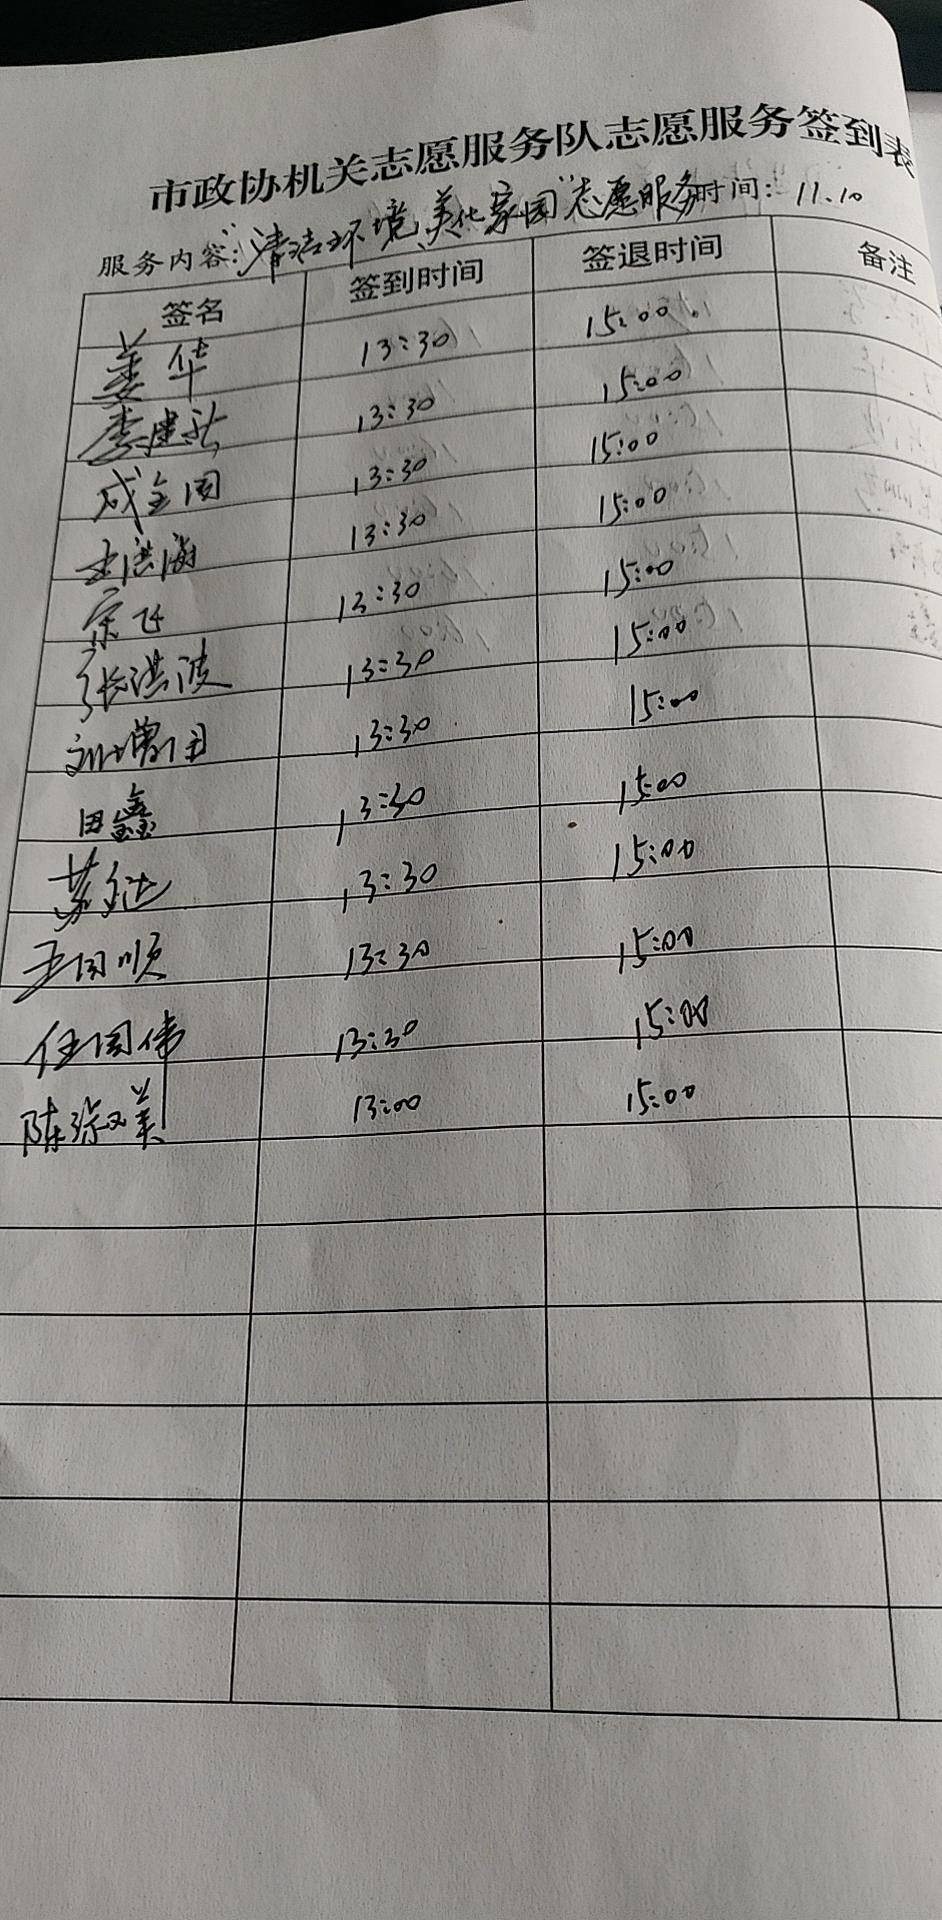 市政协机关志愿服务队志愿服务签到表
服务内容:"清洁环境 美化家园"志愿服务时间: 11.10
签名 签到时间 签退时间 备注
姜华 13:30 15:00
李建 13:30 15:00
成全国 13:30 15:00
王洪海 13:30 15:00
宗飞 13:30 15:00
张洪波 13:30 15:00
刘增国 13:30 15:00
田鑫 13:30 15:00
13:30 15:00
王国顺 13:30 15:00
任国伟 13:30 15:00
陈 美 13:00 15:00